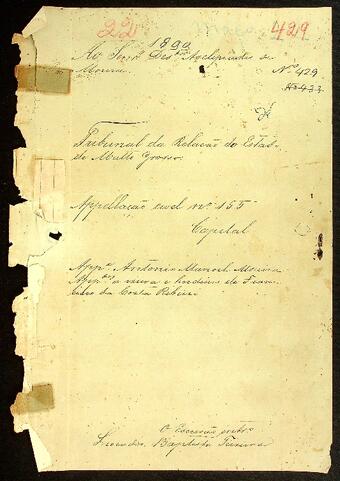 22 429
1899
Ao Senr. Des. Asclepiades de
Moura.
Nº 429
Nº 433
Tribunal da Relação do Esta-
do de Matto Grosso
Appellação civel nº 155
Capital
App.e Antonio Manoel Moreira
App.dos a viuva e herdeiros de Fran-
cisco da Costa Ribeiro
O Escrivão
Baptista